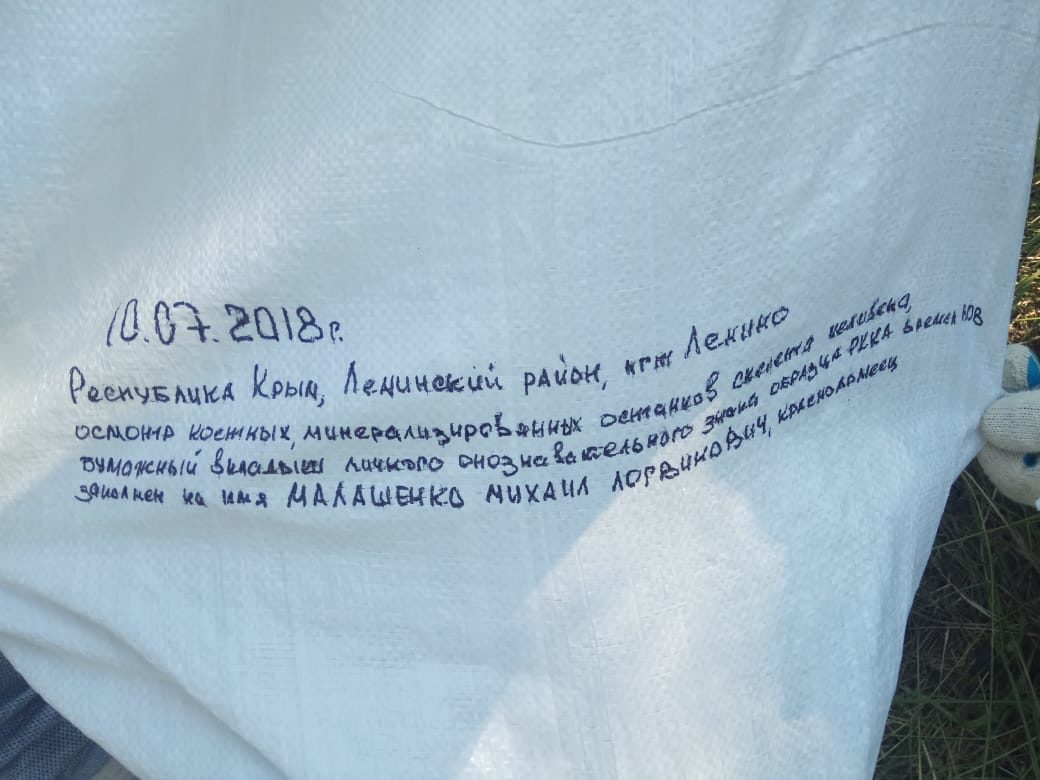 10.07.2018г.
Республика Крым, Ленинский район, пгт Ленино
осмотр костных, минерализированных останков скелета человека,
бумажный вкладыш личного опознавательного знака образца РККА времен ВОВ
заполнен на имя МАЛАШЕНКО МИХАИЛ ЛОРВИКОВИЧ, красноармеец